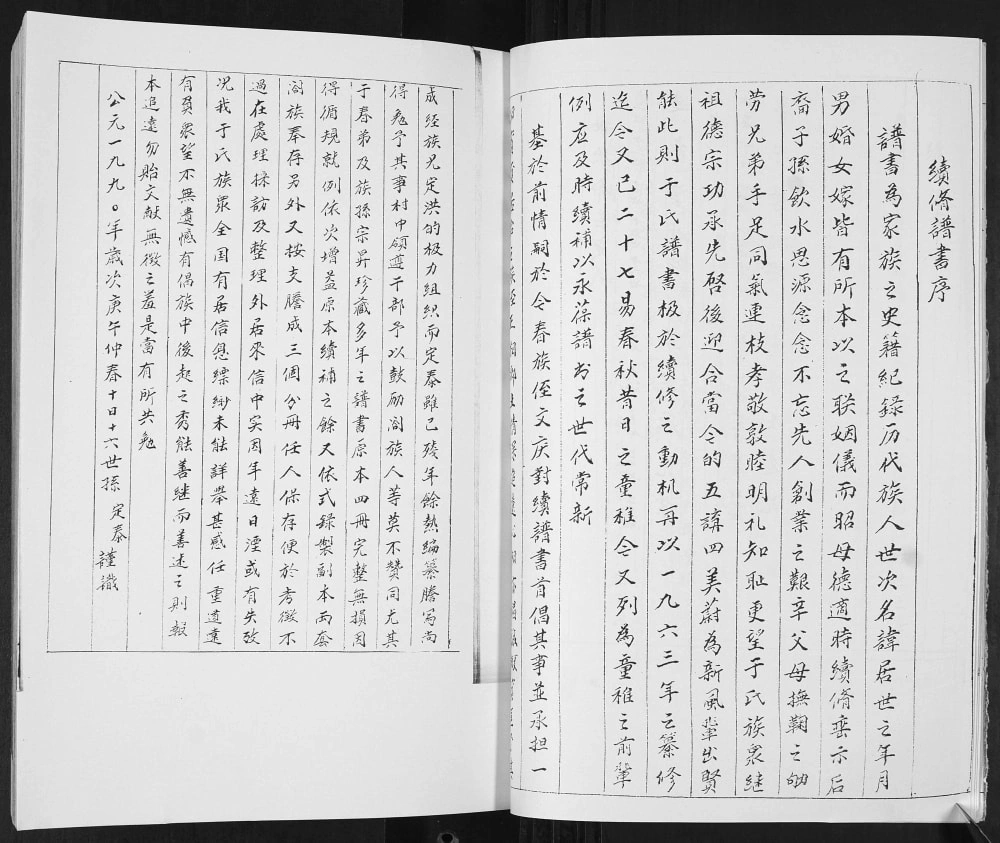 續脩譜書序
譜書為家族之史籍紀錄历代族人世次名諱居世之年月
男婚女嫁皆有所本以之联姻儀而昭母德適時續脩垂示后
裔子孫飲水思源念念不忘先人創業之艱辛父母撫鞠之劬
劳兄弟手足同氣連枝孝敬敦睦明礼知耻更望于氏族眾继
祖德宗功承先啓後迎合當今的五講四美蔚為新風輩出賢
能此則于氏譜書极於續修之動机再以一九六三年之纂修
迄今又已二十七易春秋昔日之童稚今又列為童稚之前輩
例应及時續補以永葆譜书之世代常新
基於前情嗣於今春族侄文庆對續譜書首倡其事並承担一
成经族兄定洪的极力组织而定泰雖已残年餘熱编纂謄寫尚
得勉予其事村中領導干部予以鼓励阖族人等莫不赞同尤其
于春弟及族孫宗昇珍藏多年之譜書原本四冊完整無損因
得循規就例依次增益原本續補之餘又依式録製副本两套
阖族奉存另外又按支謄成三個分冊任人保存便於考徵不
過在處理採訪及整理外居來信中实因年遠日湮或有失攷
况我于氏族眾全国有居信息缥缈未能詳举甚感任重道遠
有負眾望不無遺憾有偈族中後起之秀能善继而善述之則報
本追遠勿貽文献無徵之羞是當有所共勉
公元一九九〇年歲次庚午仲春十日十六世孫 定泰 謹識